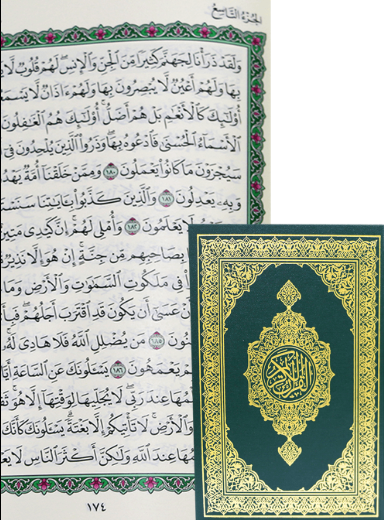 الجزء التاسع
وَلَقَدْ ذَرَأْنَا لِجَهَنَّمَ كَثِيرًا مِّنَ ٱلْجِنِّ وَٱلْإِنسِ لَهُمْ قُلُوبٌ لَّا
بِهَا وَلَهُمْ أَعْيُنٌ لَّا يُبْصِرُونَ بِهَا وَلَهُمْ ءَاذَانٌ لَّا
أُوْلَٰٓئِكَ كَٱلْأَنْعَٰمِ بَلْ هُمْ أَضَلُّ أُوْلَٰٓئِكَ هُمُ ٱلْغَٰفِلُونَ
ٱلْأَسْمَآءُ ٱلْحُسْنَىٰ فَٱدْعُوهُ بِهَا وَذَرُوا۟ ٱلَّذِينَ يُلْحِدُونَ فِىٓ
سَيُجْزَوْنَ مَا كَانُوا۟ يَعْمَلُونَ ١٨٠ وَمِمَّنْ خَلَقْنَآ أُمَّةٌ
وَبِهِۦ يَعْدِلُونَ ١٨١ وَٱلَّذِينَ كَذَّبُوا۟ بِـَٔايَٰتِنَا
لَا يَعْلَمُونَ ١٨٢ وَأُمْلِى لَهُمْ إِنَّ كَيْدِى مَتِينٌ
بِصَاحِبِهِم مِّن جِنَّةٍ إِنْ هُوَ إِلَّا نَذِيرٌ
فِى مَلَكُوتِ ٱلسَّمَٰوَٰتِ وَٱلْأَرْضِ وَمَا
عَسَىٰٓ أَن يَكُونَ قَدِ ٱقْتَرَبَ أَجَلُهُمْ
١٨٥ مَن يُضْلِلِ ٱللَّهُ فَلَا هَادِىَ لَهُۥ
يَعْمَهُونَ ١٨٦ يَسْـَٔلُونَكَ عَنِ ٱلسَّاعَةِ
عِندَ رَبِّى لَا يُجَلِّيهَا لِوَقْتِهَآ إِلَّا هُوَ
وَٱلْأَرْضِ لَا تَأْتِيكُمْ إِلَّا بَغْتَةً يَسْـَٔلُونَكَ كَأَنَّكَ
عِندَ ٱللَّهِ وَلَٰكِنَّ أَكْثَرَ ٱلنَّاسِ لَا
١٧٤
القرآن الكريم